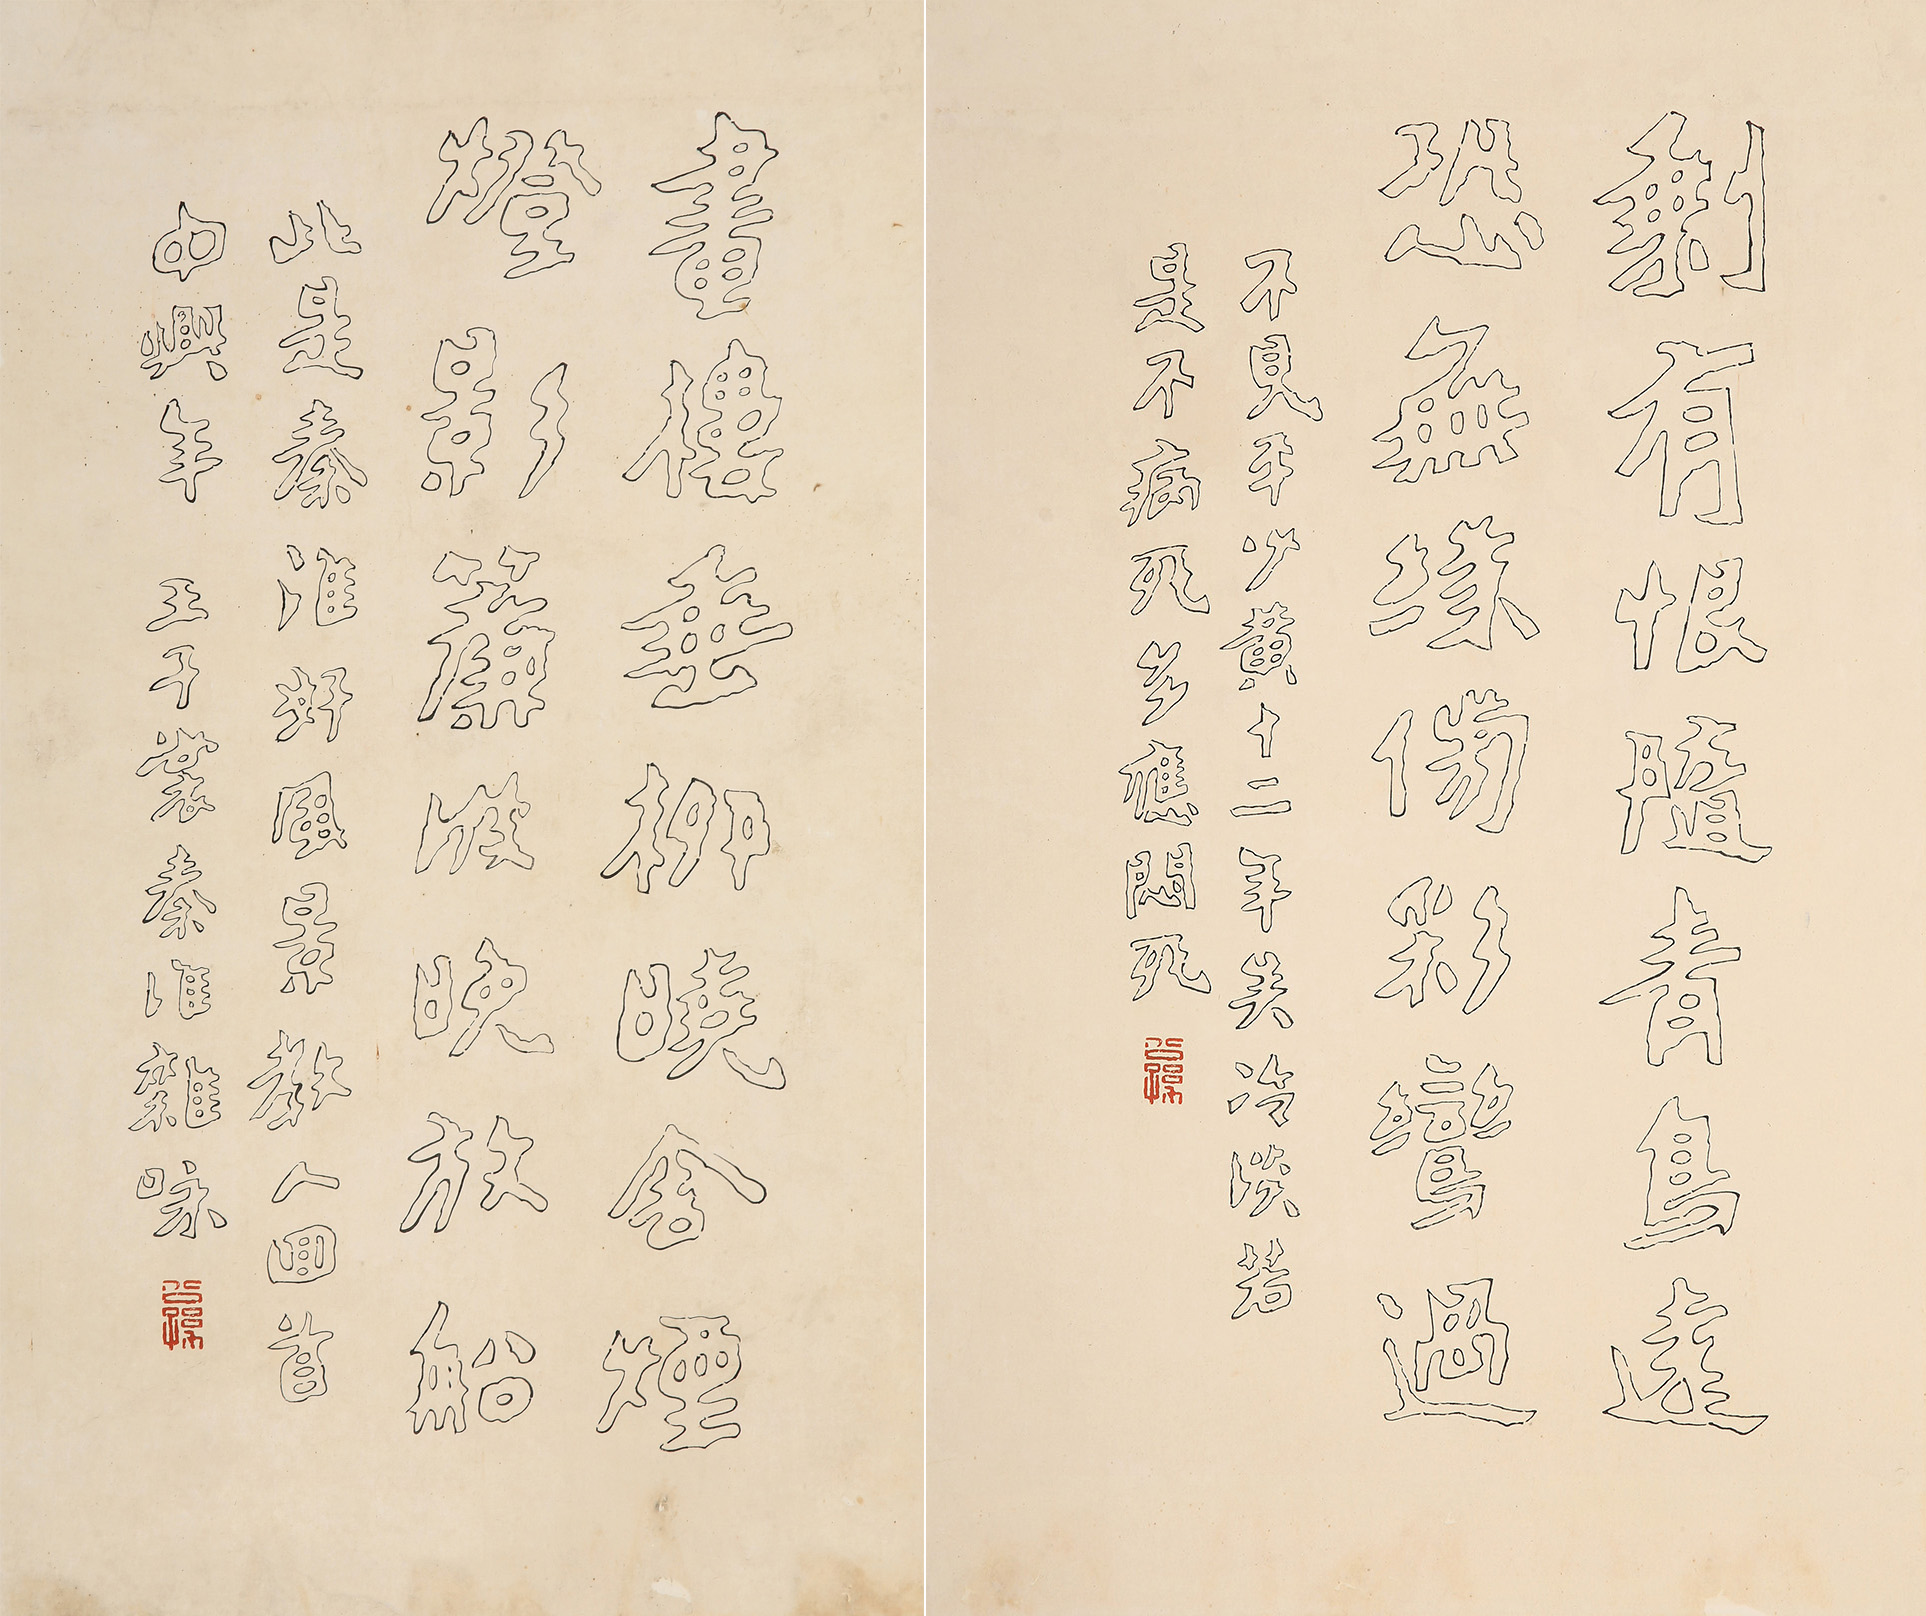 剩有恨隨青鳥達
恐無緣傍彩鸞過
不見平少黃十二年矣冷淡若
是不病死多應悶死
畫樓垂柳曉含煙
燈影簾波晚放船
此是秦淮好風景教人回首
中興年 壬子秦淮雜咏